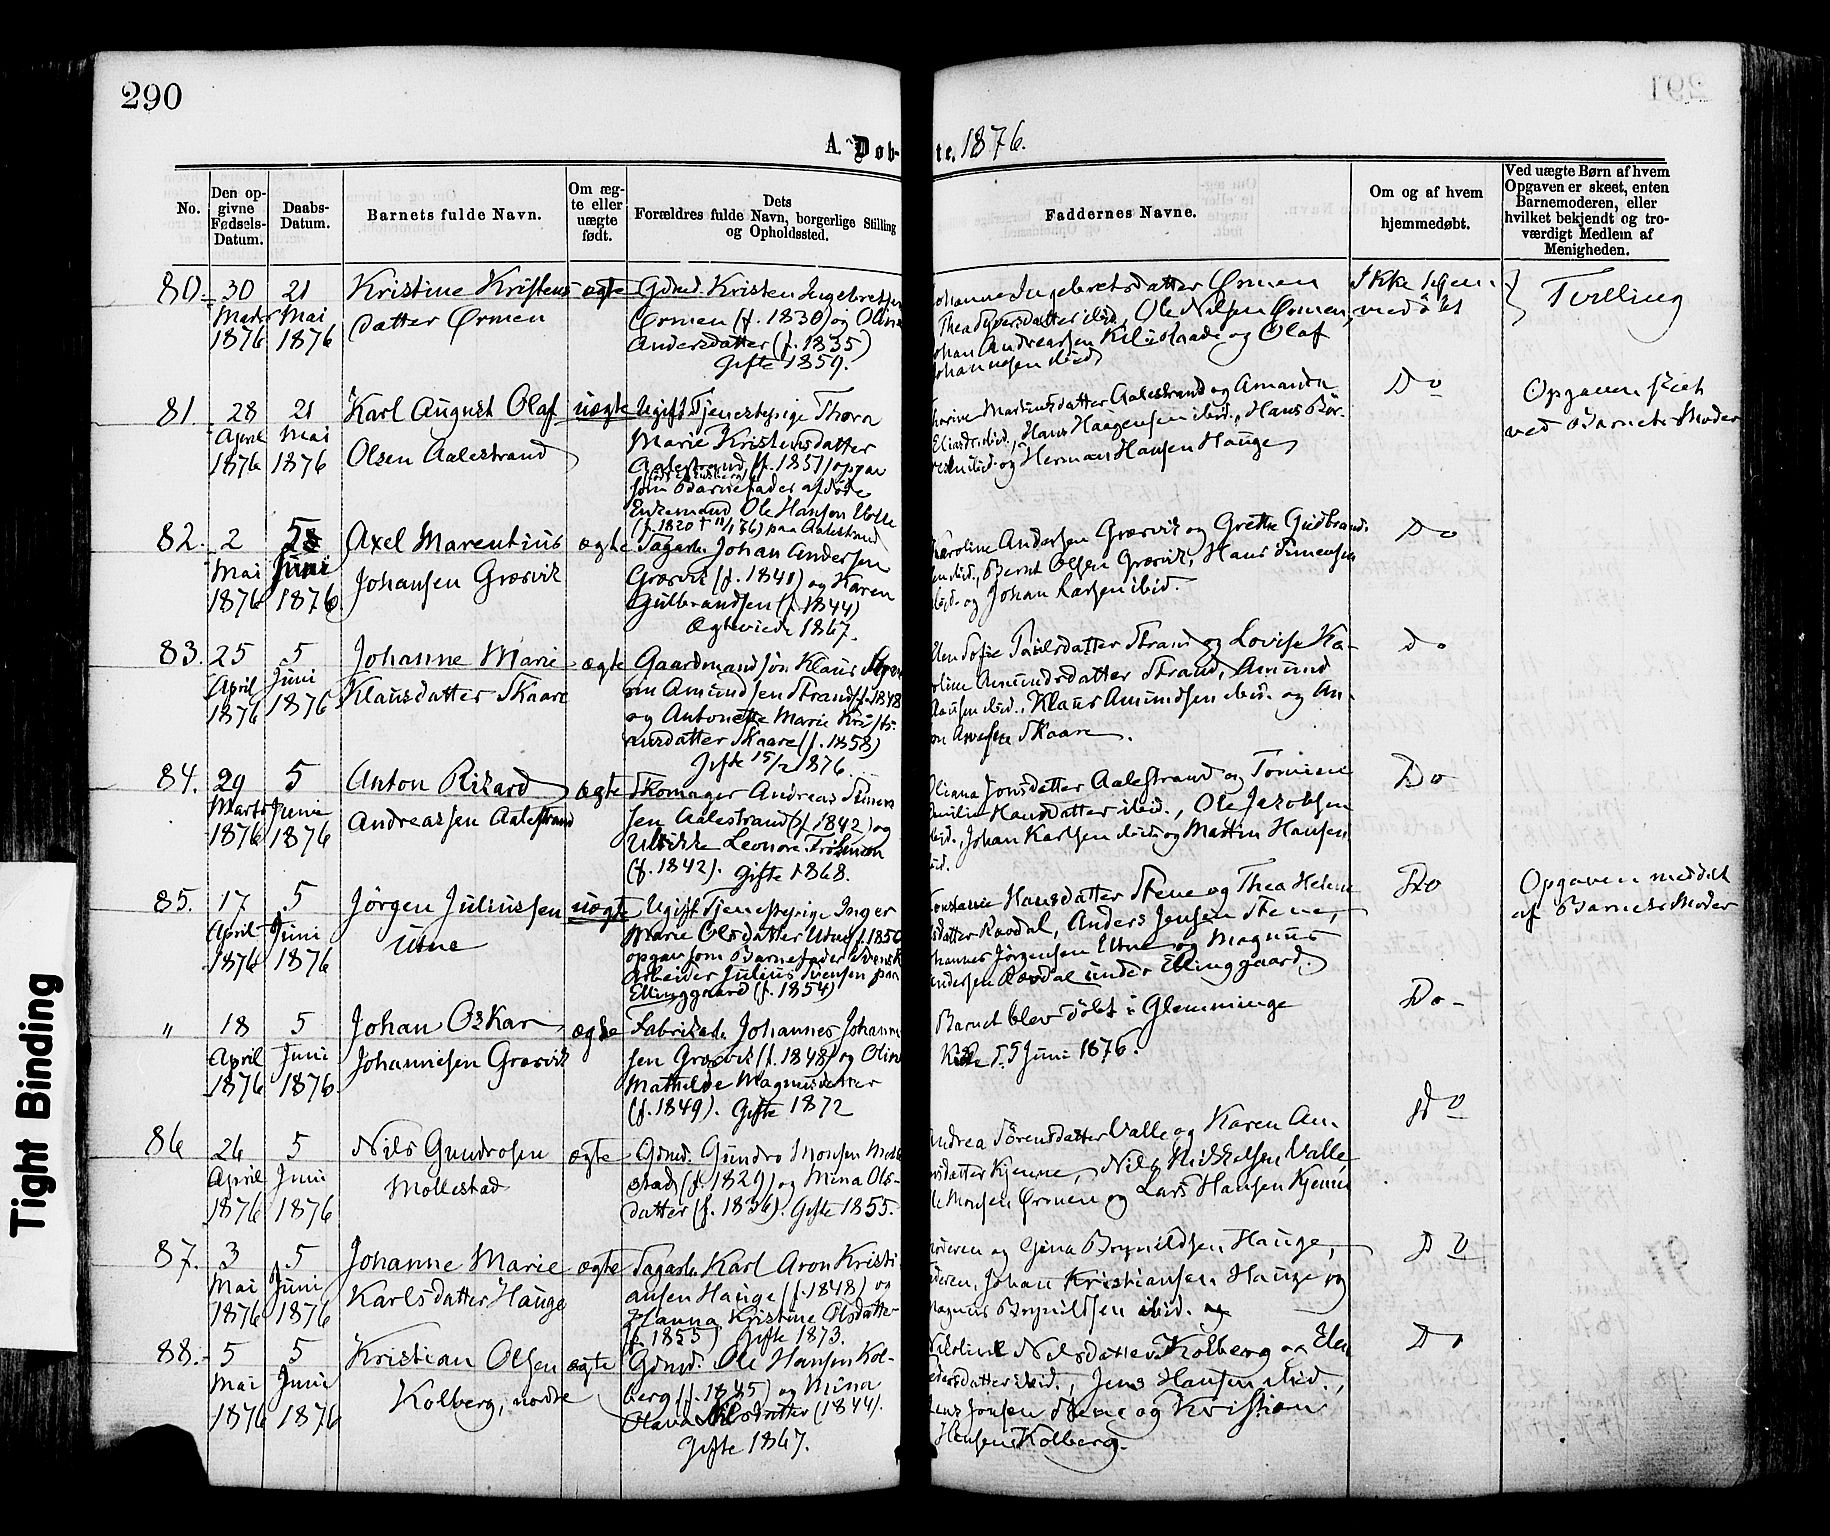 290
A. Døb-
te. 1876.
No.
Den op-
givne
Fødsels-
Datum.
Daabs-
Datum.
Barnets fulde Navn.
Om æg-
te eller
uægte
født.
Dets
Forældres fulde Navn, borgerlige Stilling
og Opholdssted.
Faddernes Navne.
Om og af hvem
hjemmedøbt.
Ved uægte Børn af hvem
Opgaven er skeet, enten
Barnemoderen, eller
hvilket bekjendt og tro-
værdigt Medlem af
Menigheden.
80. 30
Marts
1876
21
Mai
1876
Kristine Kristens
datter Ørmen
ægte
Gdmd. Kristen Ingebretsen
Ørmen (f. 1830) og Olina
Andersdatter (f. 1835)
Gifte 1859.
Johanne Ingebretsdatter Ørmen
ibid., Ole Nilsen Ørmen,
Johan Andreassen og Olaf
Johannesen ibid
Ikke hjem-
medøbt
Tvilling
81. 28
April
1876
21
Mai
1876
Karl August Olaf
Olsen Aalestrand
uægte
Ugift Tjenestepige Thora
Marie Kristensdatter
Aalestrand (f. 1851) opgav
som Barnefader afdøde
Enkemand Ole Hansen
(f. 1820 † /76) paa Aalestrand
Martinsdatter Aalestrand og Amanda
ibid., Hans Haagensen ibid., Hans Bør-
ibid. og Herman Hansen Hauge
Do
Opgaven skeet
ved Barnets Moder
82. 2
Mai
1876
5
Juni
1876
Axel Marentius
Johansen Græsvik
ægte
Sagarb. Johan Andersen
Græsvik (f. 1841) og Karen
Gulbrandsen (f. 1844)
Ægteviede 1867.
Karoline Andersen Græsvik og Grethe Gudbrand-
sen ibid., Bernt Olsen Græsvik, Hans Simensen
ibid. og Johan Larsen ibid.
Do
83. 25
April
1876
5
Juni
1876
Johanne Marie
Klausdatter Skaare
ægte
Gaardmandsøn Klaus
Amundsen Strand (f. 1848
og Antonette Marie Kristi-
ansdatter Skaare (f. 1858)
Gifte 15/2 1876.
Ellen Sofie Paulsdatter Strand og Lovise Ka-
roline Amundsdatter Strand, Amund
Klausen ibid., Klaus Amundsen ibid. og An-
Skaare.
Do
84. 29
Marts
1876
5
Juni
1876
Anton Rikard
Andreassen Aalestrand
ægte
Skomager Andreas Simen
sen Aalestrand (f. 1842) og
Ulrikke Leonore
(f. 1842). Gifte 1868.
Jonsdatter Aalestrand og Tomine
Emilie Hansdatter ibid., Ole Jakobsen
ibid., Johan Karlsen ibid og Martin Hansen
ibid.
Do
85. 17
April
1876
5
Juni
1876
Jørgen Juliussen
Utne
uægte
Ugift Tjenestepige Inger
Marie Olsdatter Utne f. 1850
opgav som Barnefader Svensk
Arbeider Julius Svensen paa
Ellinggaard (f. 1854)
Konstanse Hansdatter Stene og Thea Helene
datter Ravdal, Anders Jensen Stene,
Johannes Jørgensen Utne og Magnus
Andersen Ravdal under Ellinggaard.
Do
Opgaven meddelt
af Barnets Moder
" 18
April
1876
5
Juni
1876
Johan Oskar
Johannesen Græsvik
ægte
Fabrikarb. Johannes Johanne
sen Græsvik (f. 1848) og Olive
Mathilde Magnusdatter
(f. 1849). Gifte 1872
Barnet blev døbt i Glemminge
Kirke d. 5 Juni 1876.
Do
86 26
April
1876
5
Juni
1876
Nils Gundrosen
Mollestad
ægte
Gdmd. Gundro Monsen Molle
stad (f. 1829) og Mina Ols-
datter (f. 1836). Gifte 1855.
Andrea Sørensdatter Valle og Karen An-
datter Kjenne, Nils Nickelsen Valle
Ole Monsen Ørmen og Lars Hansen Kjenne
Do
87. 3
Mai
1876
5
Juni
1876
Johanne Marie
Karlsdatter Hauge
ægte
Sagarb. Karl Aron Kristi
ansen Hauge (f. 1848) og
Hanna Kristine Olsdatter
(f. 1855) Gifte 1873.
Moderen og Gina Brynildsen Hauge,
Faderen, Johan Kristiansen Hauge og
Magnus Brynildsen ibid.
Do
88. 5
Mai
1876
5
Juni
1876
Kristian Olsen
Kolberg, nordre
ægte
Gdmd. Ole Hansen Kol-
berg (f. 1845) og Mina
Olava Nilsdatter (1844).
Gifte 1867.
Nikoline Nilsdatter Kolberg og Elen
Pedersdatter ibid., Jens Hansen ibid.,
Jonsen Stene og Kristian
Hansen Kolberg.
Do
Tight Binding